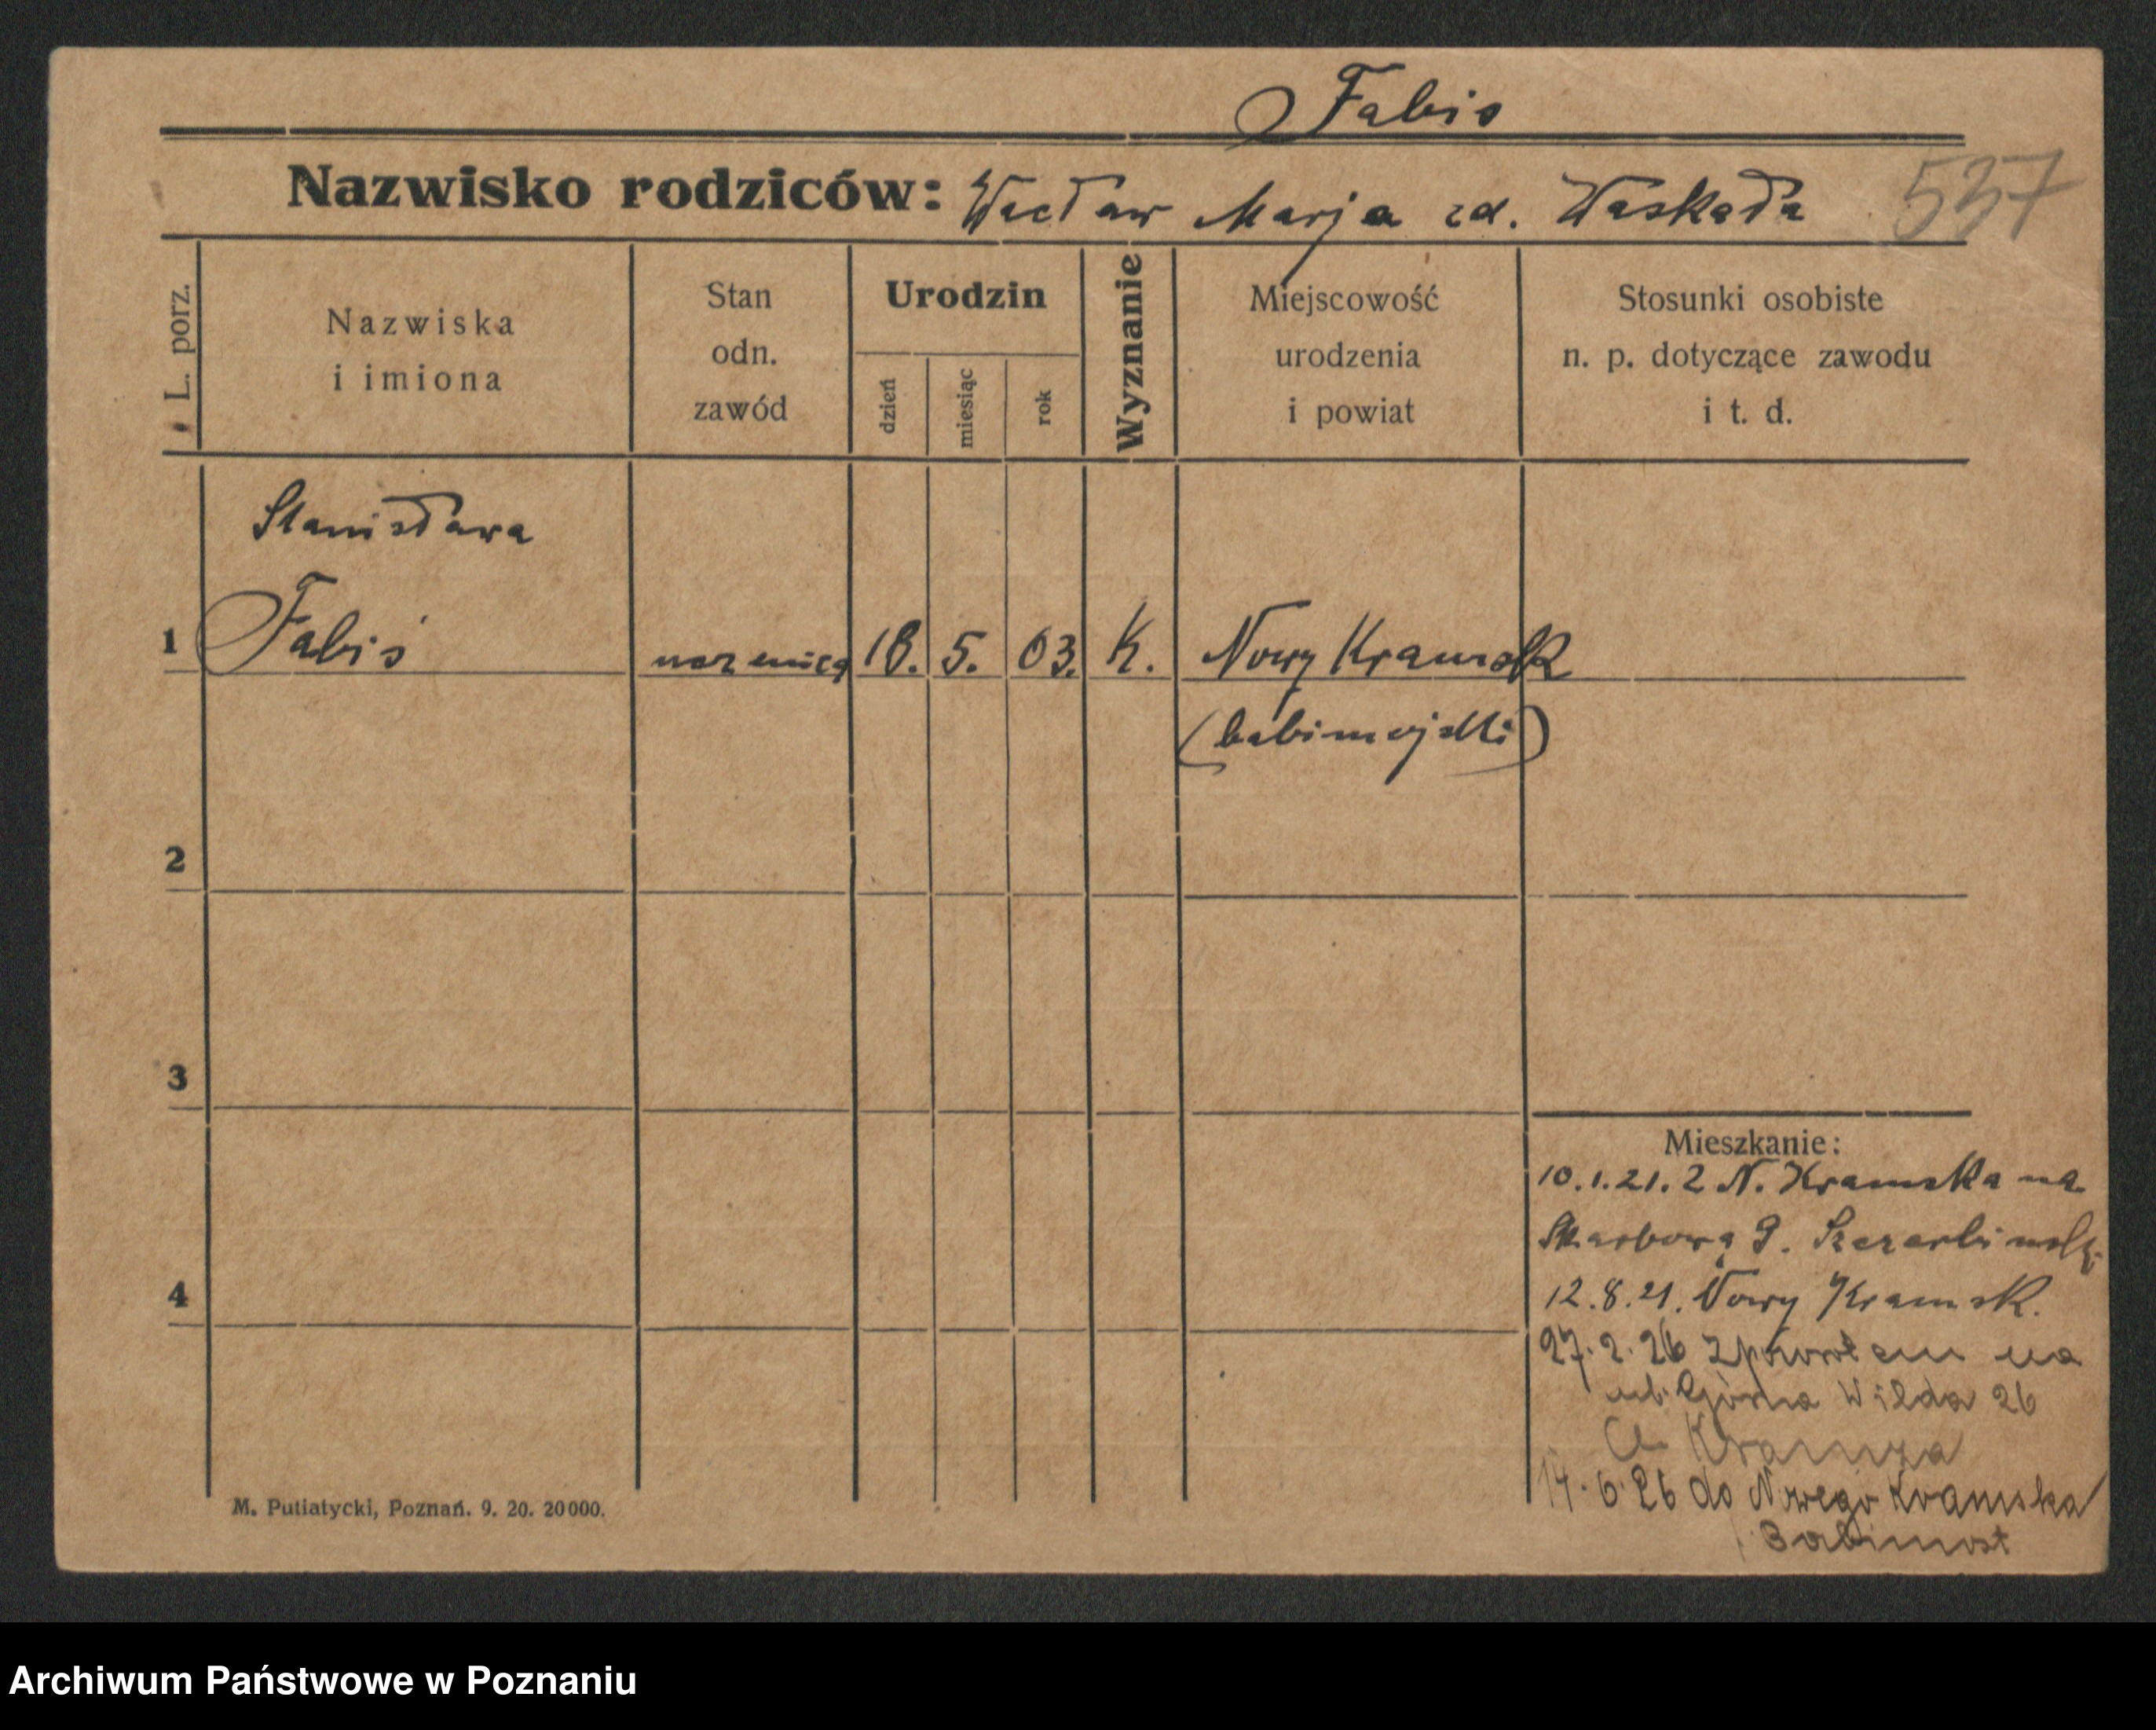 Fabis
Nazwisko rodziców: Wacław Marja zd. Waskada 537
L. porz.
Nazwiska
i imiona
Stan
odn.
zawód
Urodzin
dzień
miesiąc
rok
Wyznanie
Miejscowość
urodzenia
i powiat
Stosunki osobiste
n. p. dotyczące zawodu
i t. d.
Stanisława
1 Fabiś uczenicą 18. 5. 03. K. Nowy Kramsk
(babimojski)
2
3
Mieszkanie:
10.1.21. z N. Kramska na
Skarbową 9. Szczerbińsk.
4
12.8.21. Nowy Kramsk.
27.2.26 zpowrotem na
ul. Górna Wilda 26
Kramza
14.6.26 do Nowego Kramska
Babimost
M. Putiatycki, Poznań. 9. 20. 20000.
Archiwum Państwowe w Poznaniu